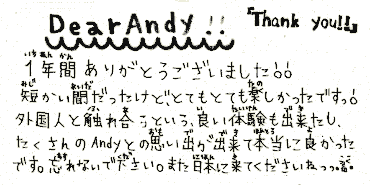 Dear Andy!! 『Thank you!!』
1年間ありがとうございました!!
短かい間だったけどとてもとても楽しかったですっ!
外国人と触れ合うという、良い体験も出来たし、
たくさんのAndyとの思い出が出来て本当に良かった
です。忘れないでください。また日本に来てくださいねっっ。